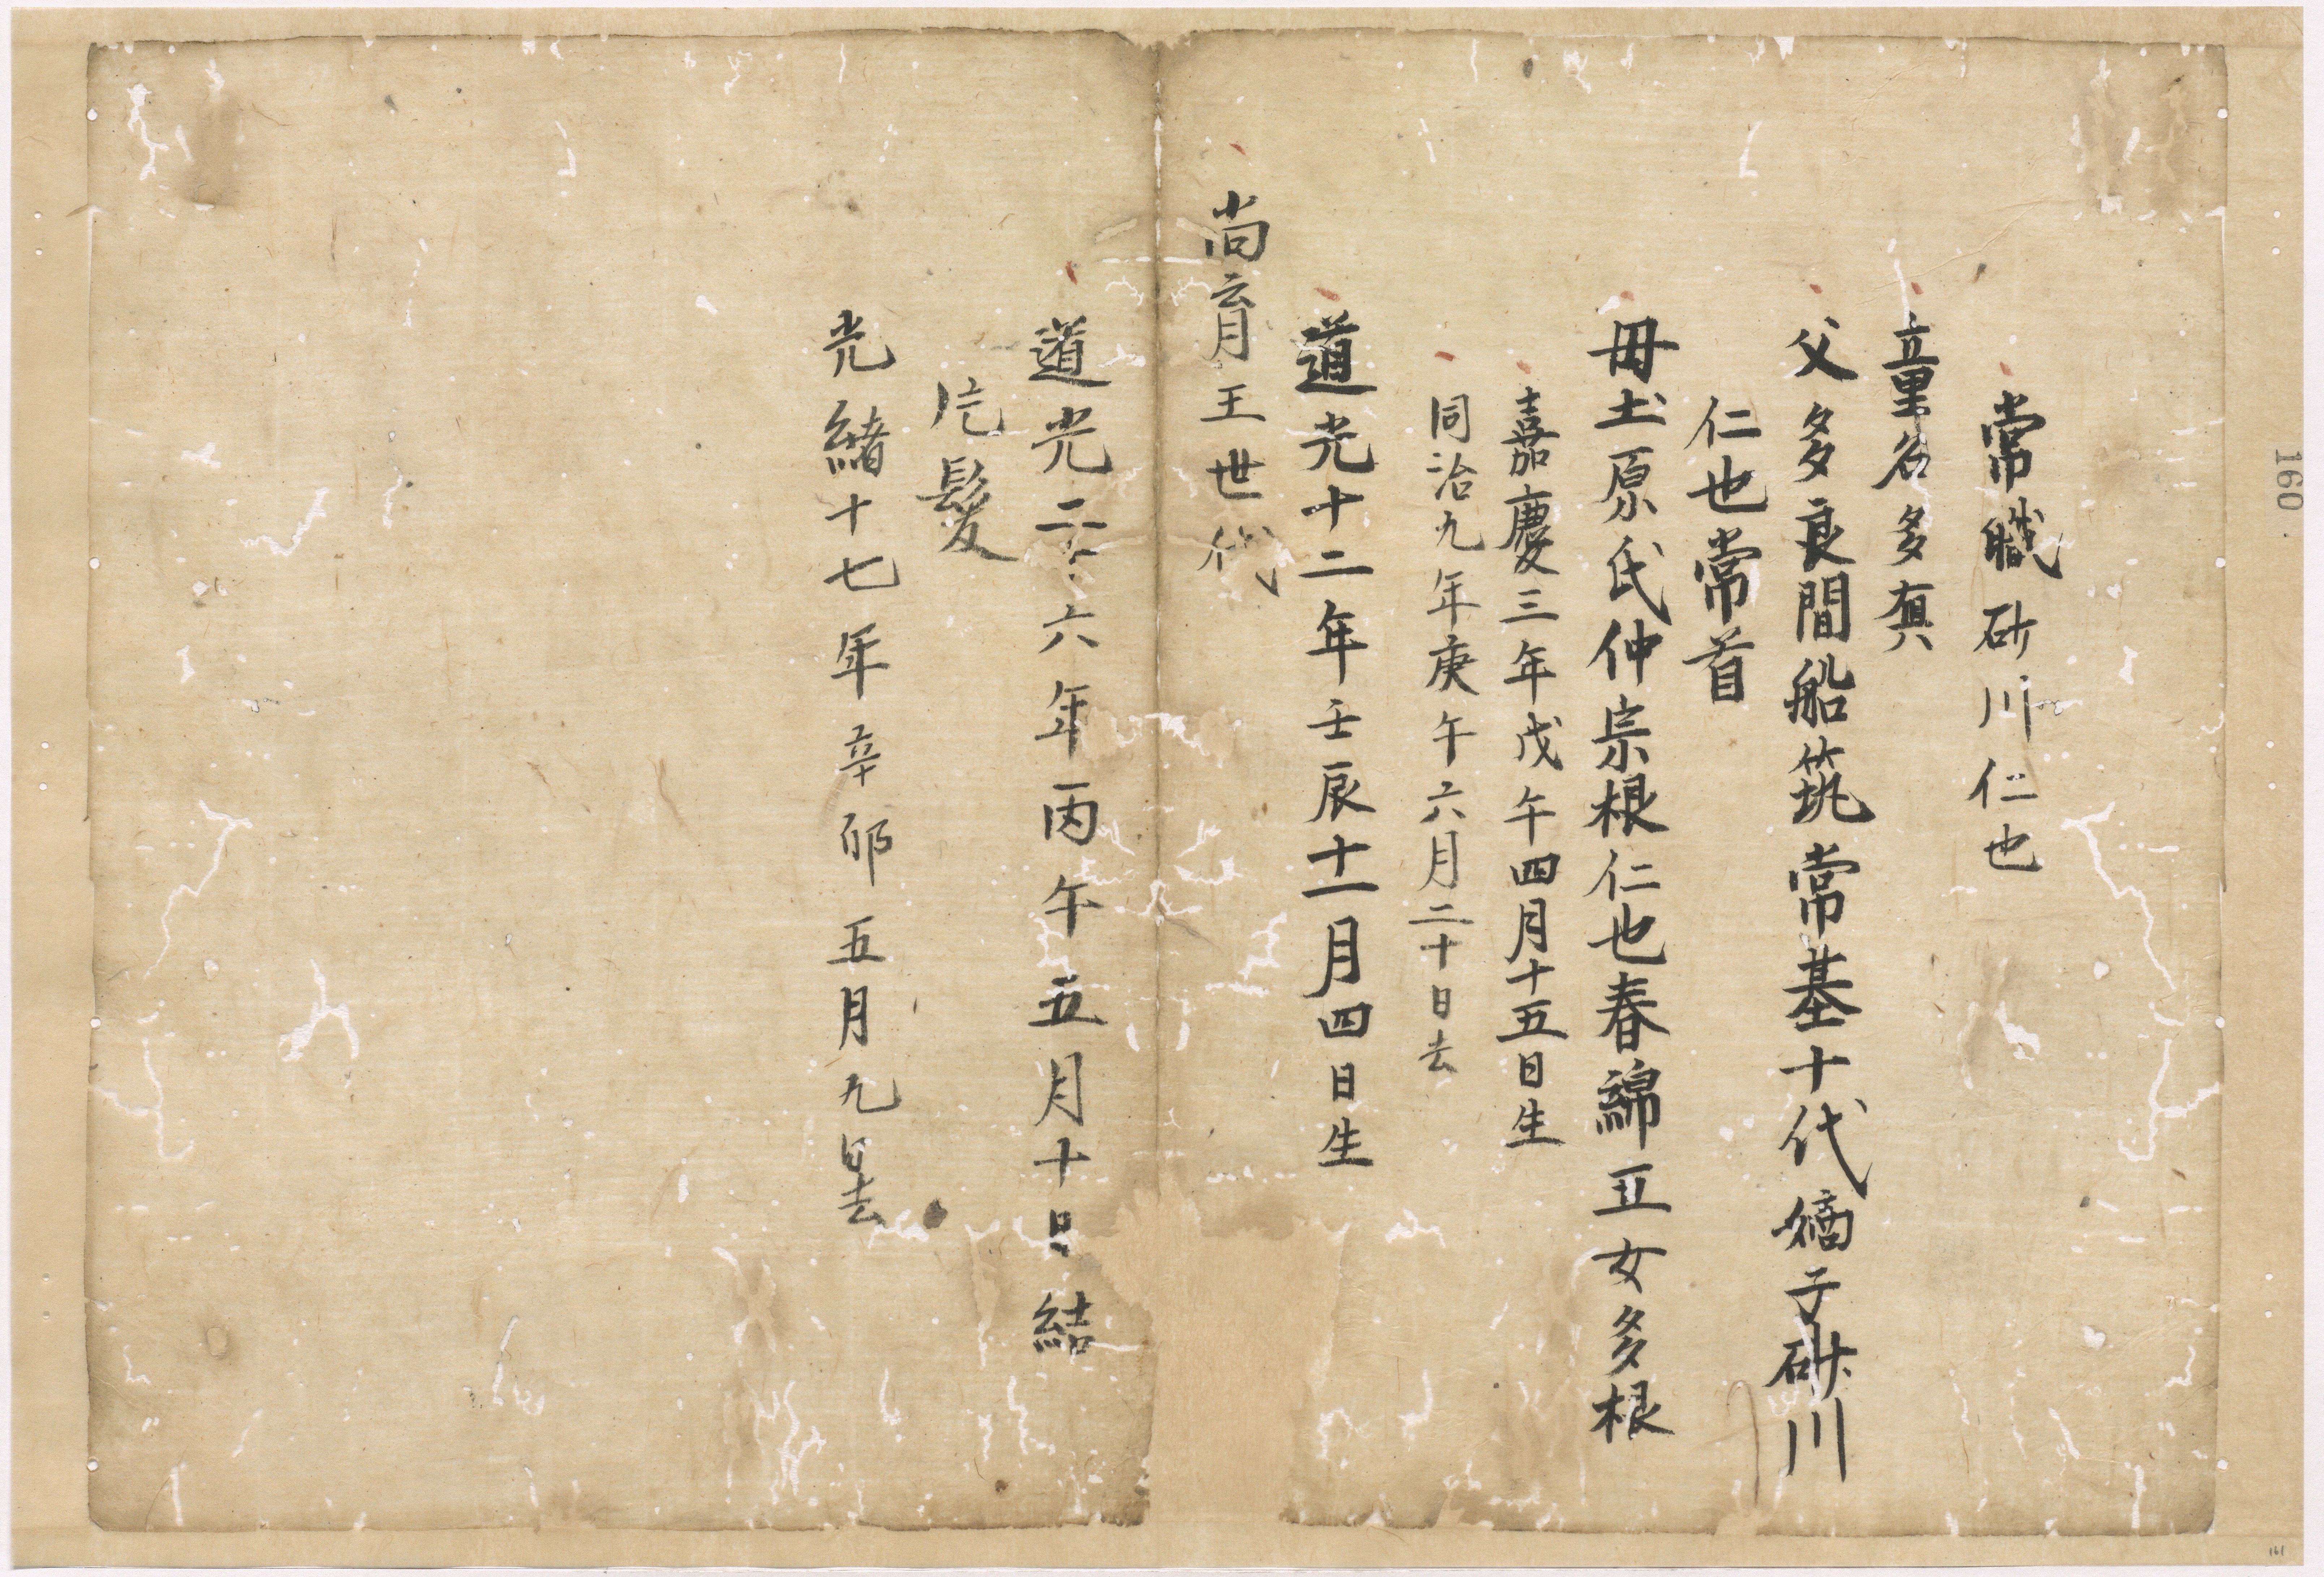 常職砂川仁也
童名多真
父多良間船筑常基十代嫡子砂川
仁也常首
毋土原氏仲宗根仁也春綿五女多根
嘉慶三年戊午四月十五日生
同治九年庚午六月二十日去
道光十二年壬辰十一月四日生
尚育王世代
道光二十六年丙午五月十日結
片髮
光緒十七年辛卯五月九日去
160
161